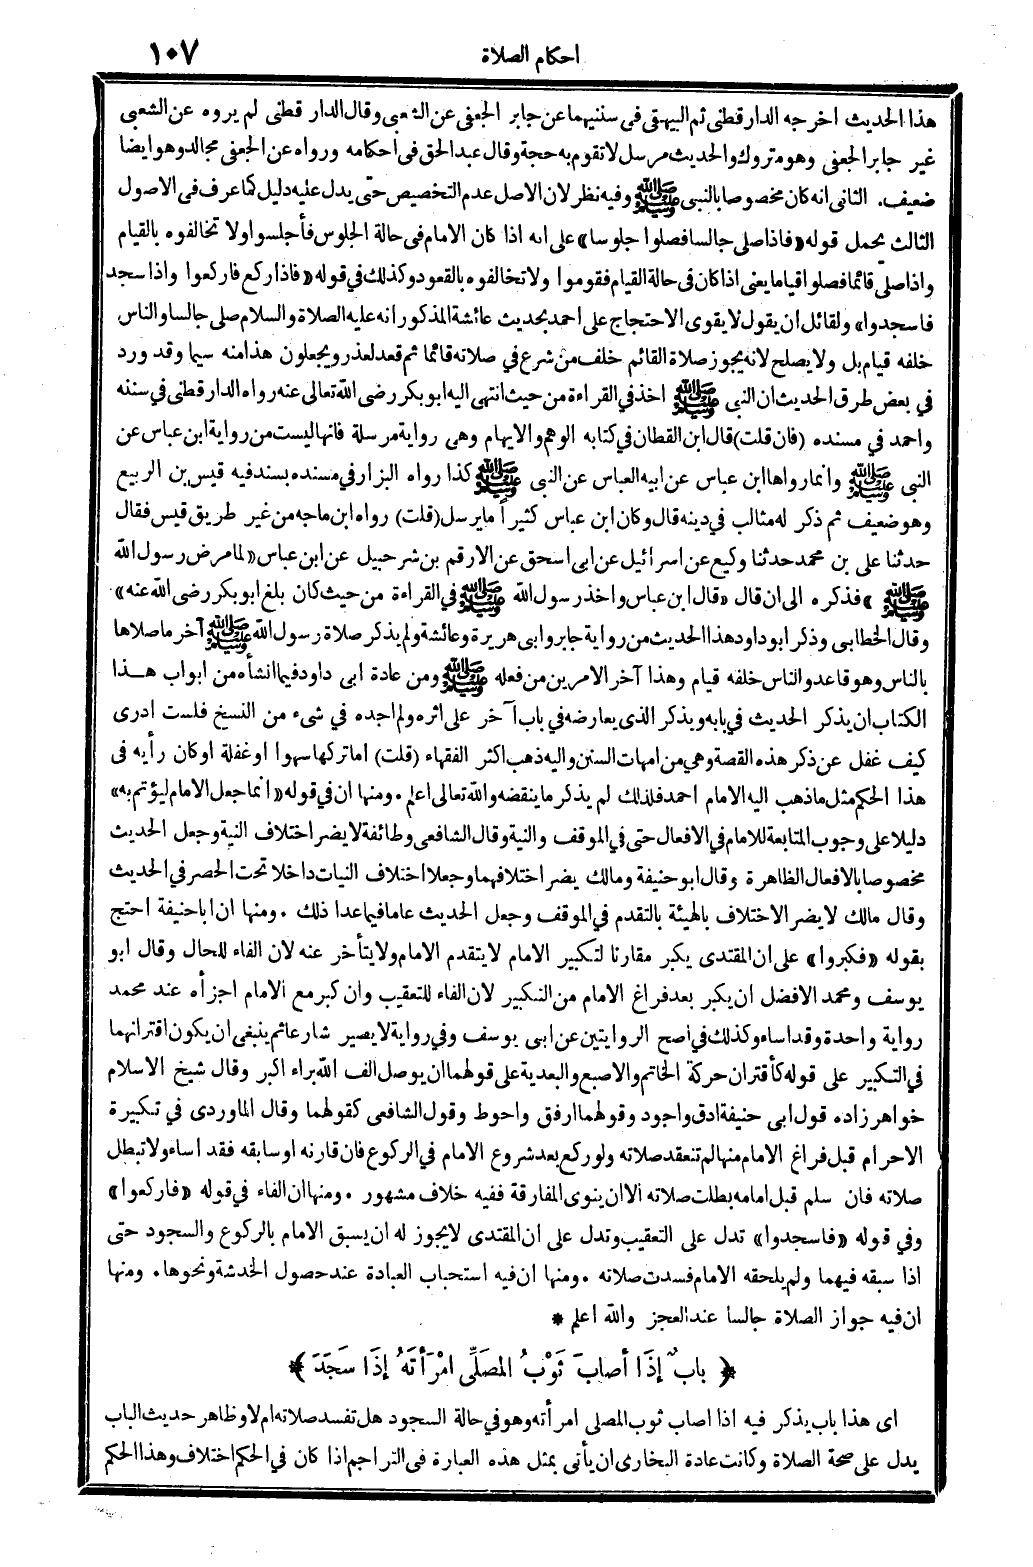 احكام الصلاة ١٠٧
هذا الحديث اخرجه الدارقطنى ثم البيهقى فى سننيهما عن جابر الجعفى عن الشعبى وقال الدار قطنى لم يروه عن الشعبى
غير جابر الجعفى وهو متروك والحديث مرسل لا تقوم به حجة وقال عبد الحق فى احكامه ورواه عن الجعفى مجالد وهو ايضا
ضعيف. الثانى انه كان مخصوصا بالنبى ﷺ وفيه نظر لان الاصل عدم التخصيص حتى يدل عليه دليل كما عرف فى الاصول
الثالث يحمل قوله «فاذا صلى جالسا فصلوا جلوسا» على انه اذا كان الامام فى حالة الجلوس فأجلسوا ولا تخالفوه بالقيام
واذا صلى قائما فصلوا قياما يعنى اذا كان فى حالة القيام فقوموا ولا تخالفوه بالقعود وكذلك في قوله «فاذا ركع فاركعوا واذا سجد
فاسجدوا» ولقائل ان يقول لا يقوى الاحتجاج على احمد بحديث عائشة المذكور انه عليه الصلاة والسلام صلى جالسا والناس
خلفه قيام بل ولا يصلح لانه يجوز صلاة القائم خلف من شرع في صلاته قائما ثم قعد لعذر ويجعلون هذا منه سيما وقد ورد
في بعض طرق الحديث ان النبى ﷺ اخذ في القراءة من حيث انتهى اليه ابو بكر رضى الله تعالى عنه رواه الدار قطنى في سننه
واحمد في مسنده (فان قلت) قال ابن القطان في كتابه الوهم والايهام وهى رواية مرسلة فانها ليست من رواية ابن عباس عن
النبى ﷺ وانما رواها ابن عباس عن ابيه العباس عن النبى ﷺ كذا رواه البزار في مسنده بسند فيه قيس بن الربيع
وهو ضعيف ثم ذكر له مثالب في دينه قال وكان ابن عباس كثيرا ما يرسل (قلت) رواه ابن ماجه من غير طريق قيس فقال
حدثنا على بن محمد حدثنا وكيع عن اسرائيل عن ابى اسحق عن الارقم بن شرحبيل عن ابن عباس «لما مرض رسول الله
ﷺ» فذكره الى ان قال «قال ابن عباس واخذ رسول الله ﷺ في القراءة من حيث كان بلغ ابو بكر رضى الله عنه»
وقال الخطابى وذكر ابو داود هذا الحديث من رواية جابر وابى هريرة وعائشة ولم يذكر صلاة رسول الله ﷺ آخر ما صلاها
بالناس وهو قاعد والناس خلفه قيام وهذا آخر الامرين من فعله ﷺ ومن عادة ابى داود فيما انشأه من ابواب هــذا
الكتاب ان يذكر الحديث في بابه ويذكر الذى يعارضه في باب آخر على اثره ولم اجده في شىء من النسخ فلست ادرى
كيف غفل عن ذكر هذه القصة وهي من امهات السنن واليه ذهب اكثر الفقهاء (قلت) اما تركها سهوا او غفلة او كان رأيه فى
هذا الحكم مثل ما ذهب اليه الامام احمد فلذلك لم يذكر ما ينقضه والله تعالى اعلم. ومنها ان في قوله «انما جعل الامام ليؤتم به»
دليلا على وجوب المتابعة للامام في الافعال حتى في الموقف والنية وقال الشافعى وطائفة لا يضر اختلاف النية وجعل الحديث
مخصوصا بالافعال الظاهرة وقال ابو حنيفة ومالك يضر اختلافهما وجعلا اختلاف النيات داخلا تحت الحصر في الحديث
وقال مالك لا يضر الاختلاف بالهيئة بالتقدم في الموقف وجعل الحديث عاما فيما عدا ذلك. ومنها ان ابا حنيفة احتج
بقوله «فكبروا» على ان المقتدى يكبر مقارنا لتكبير الامام لا يتقدم الامام ولا يتأخر عنه لان الفاء للحال وقال ابو
يوسف ومحمد الافضل ان يكبر بعد فراغ الامام من التكبير لان الفاء للتعقيب وان كبر مع الامام اجزأه عند محمد
رواية واحدة وقد اساء وكذلك في اصح الروايتين عن ابى يوسف وفي رواية لا يصير شارعا ثم ينبغى ان يكون اقترانهما
في التكبير على قوله كأقتران حركة الخاتم والاصبع والبعدية على قولهما ان يوصل الف الله براء اكبر وقال شيخ الاسلام
خواهر زاده قول ابى حنيفة ادق واجود وقولهما ارفق واحوط وقول الشافعى كقولهما وقال الماوردى في تكبيرة
الاحرام قبل فراغ الامام منها لم تنعقد صلاته ولو ركع بعد شروع الامام في الركوع فان قارنه او سابقه فقد اساء ولا تبطل
صلاته فان سلم قبل امامه بطلت صلاته الا ان ينوى المفارقة ففيه خلاف مشهور. ومنها ان الفاء في قوله «فاركعوا»
وفي قوله «فاسجدوا» تدل على التعقيب وتدل على ان المقتدى لا يجوز له ان يسبق الامام بالركوع والسجود حتى
اذا سبقه فيهما ولم يلحقه الامام فسدت صلاته. ومنها ان فيه استحباب العبادة عند حصول الخدشة ونحوها. ومنها
ان فيه جواز الصلاة جالسا عند العجز والله اعلم *
﴿ بابٌ إذَا أصابَ ثَوْبُ المصَلِّى امْرَأتَهُ إذَا سَجَدَ ﴾
اى هذا باب يذكر فيه اذا اصاب ثوب المصلى امرأته وهو في حالة السجود هل تفسد صلاته ام لا وظاهر حديث الباب
يدل على صحة الصلاة وكانت عادة البخارى ان يأتى بمثل هذه العبارة فى التراجم اذا كان في الحكم اختلاف وهذا الحكم